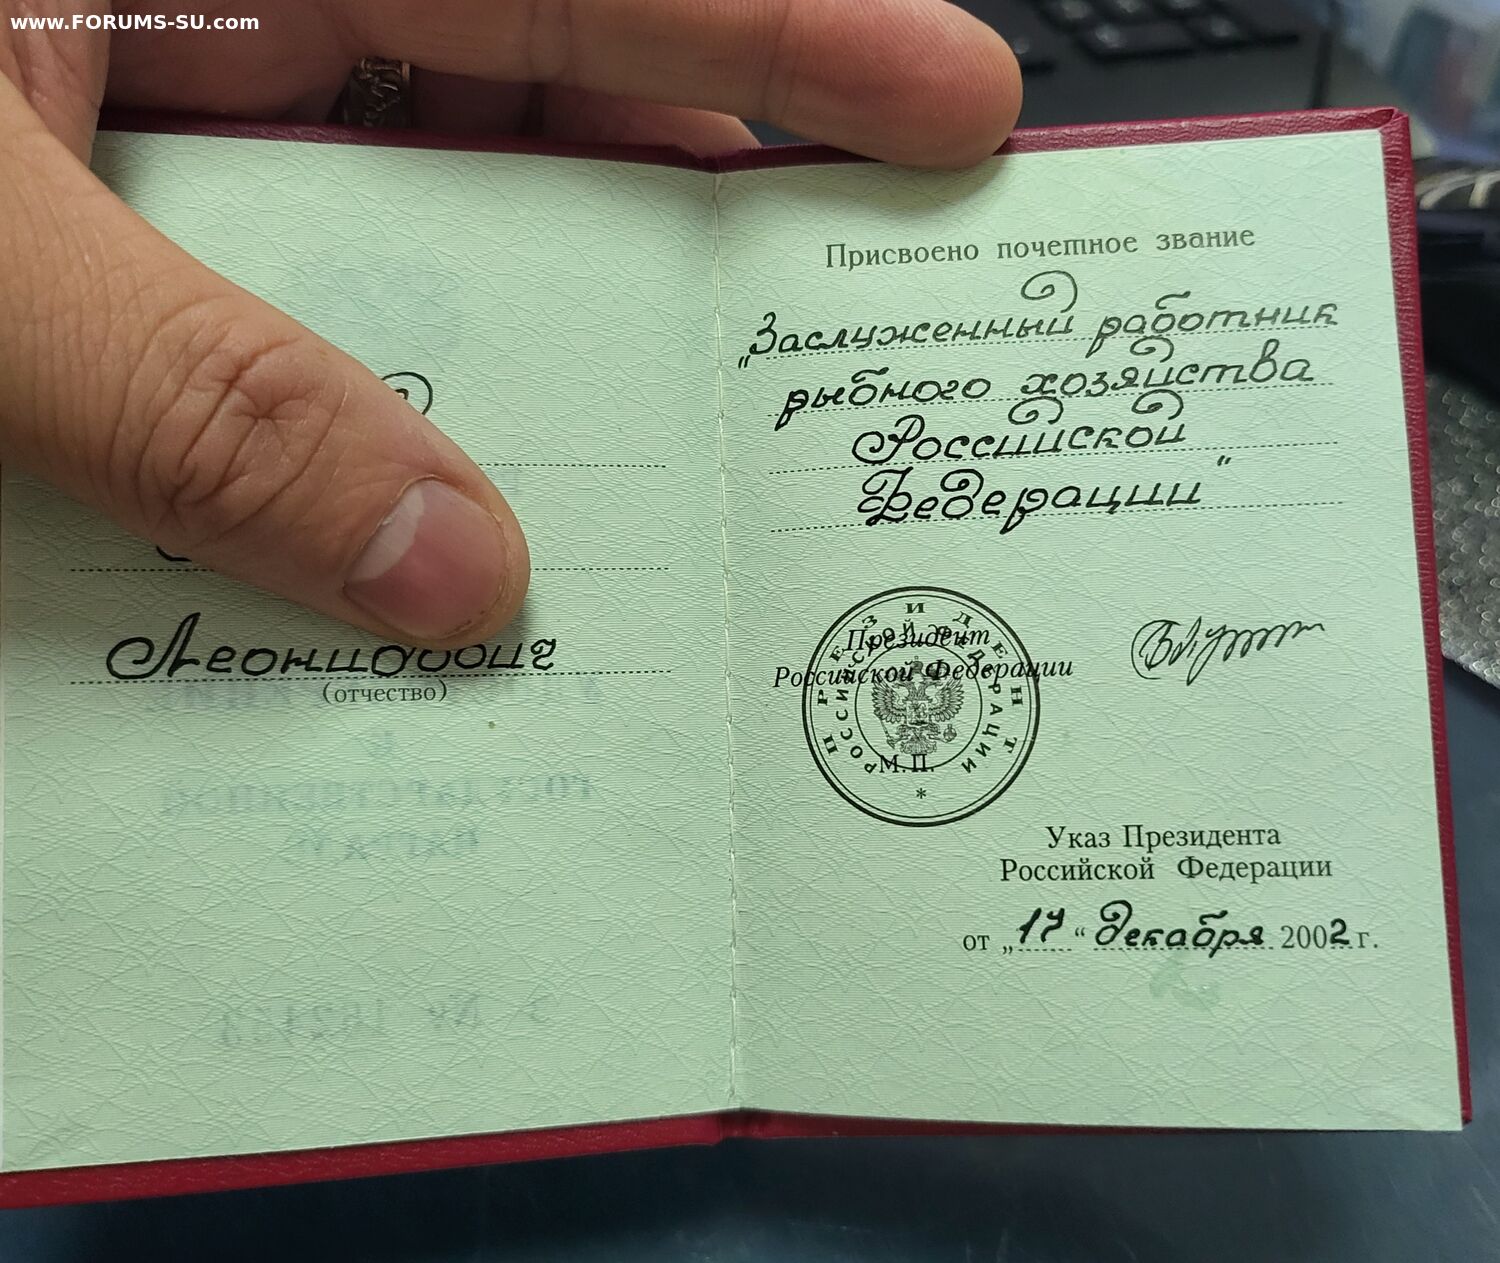 www.FORUMS-SU.com
Леонидович
(отчество)
Присвоено почетное звание
„Заслуженный работник
рыбного хозяйства
Российской
Федерации“
Президент
Российской Федерации
ПРЕЗИДЕНТ
РОССИЙСКОЙ ФЕДЕРАЦИИ
*
М.П.
Указ Президента
Российской Федерации
от „17“ декабря 2002 г.